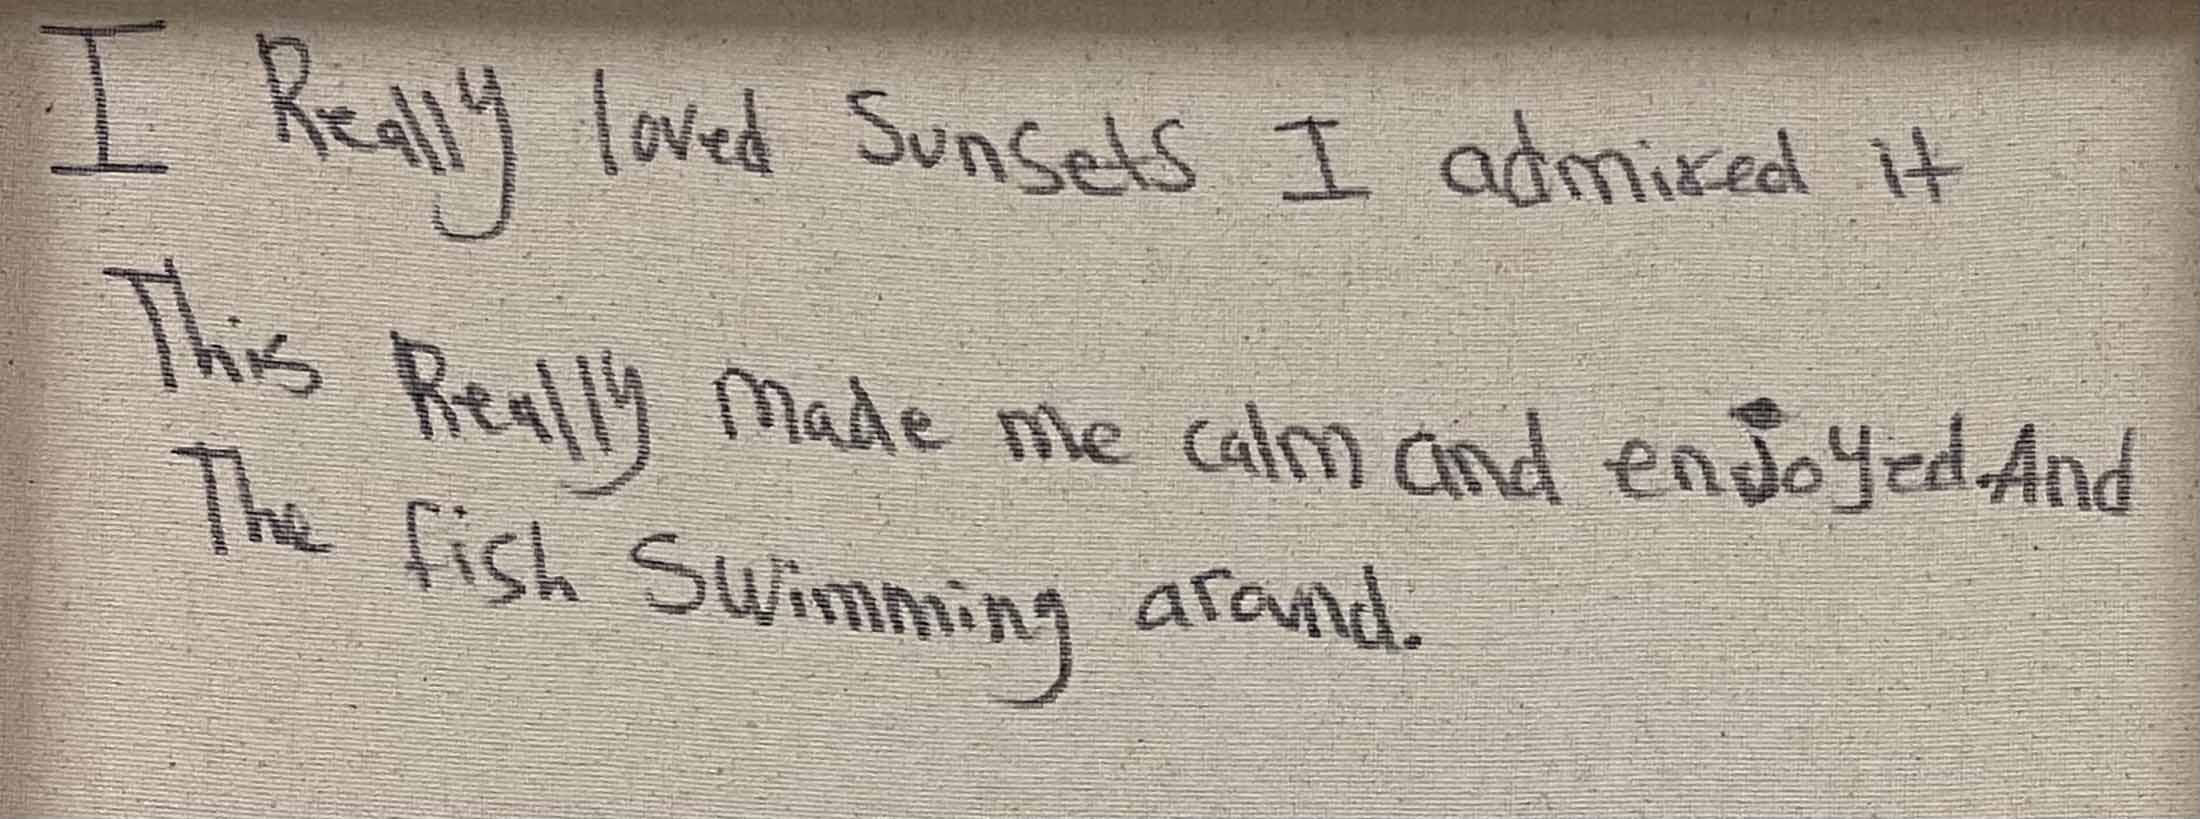 I Really loved Sunsets I admired it
This Really made me calm and enjoyed. And
The fish swimming around.